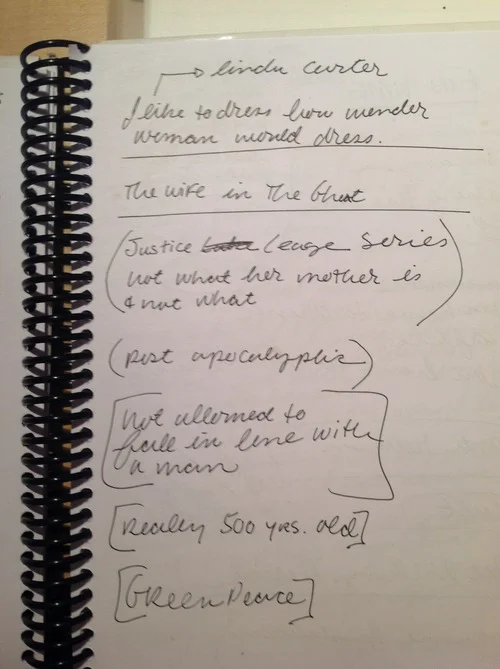 Linda Carter
I like to dress how wonder
woman would dress.
The wife in The
(Justice Leage Series
not what her mother is
& not what)
(post apocalyptic)
[not allowed to
fall in line with
a man]
[Really 500 yrs. old]
[GReen Peace]